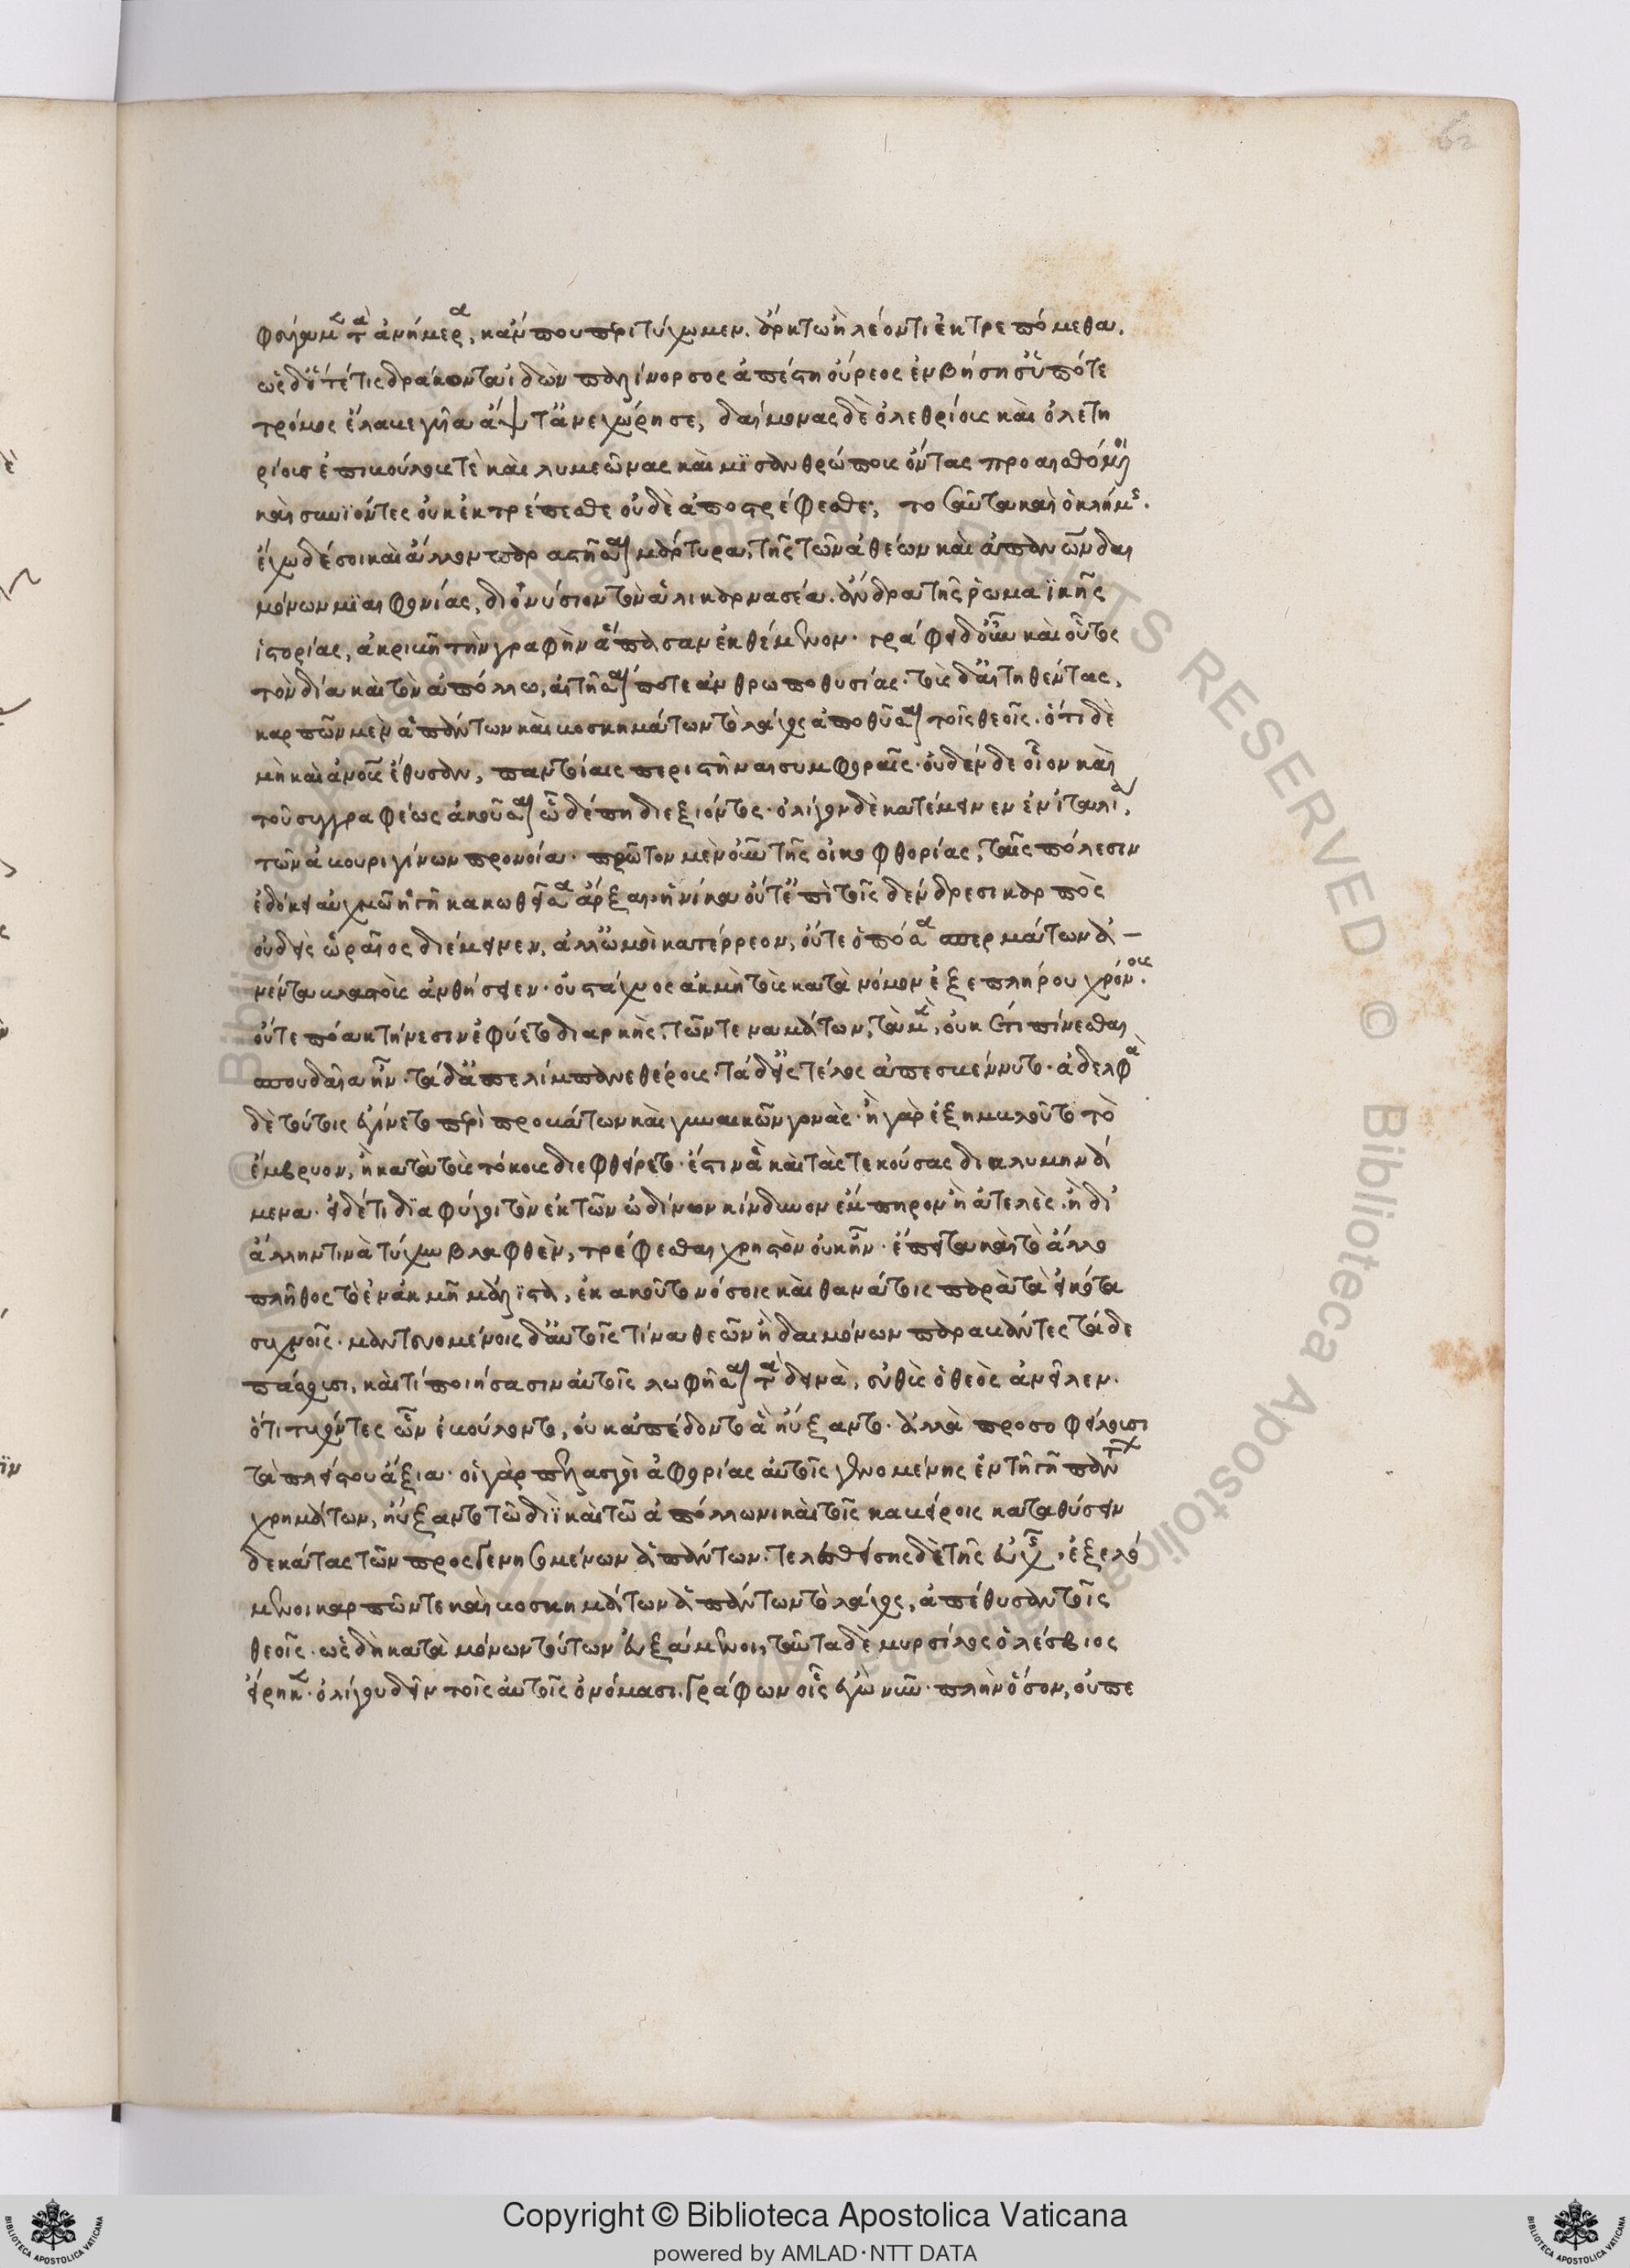 φεύγομεν τὰ ἀνήμερα, κἄν που περιτύχωμεν. ἄρκτω ἢ λέοντι ἐκτρεπόμεθα.
ὡς δ' ὅτέ τίς δράκοντα ἰδὼν παλίνορσος ἀπέστη οὔρεος ἐν βήσσης ὑπό τε
τρόμος ἔλαβε γυῖα ἄψ τ' ἀνεχώρησε, δαίμονας δὲ ὀλεθρίους καὶ ὀλετη
ρίους ἐπιβούλους τὲ καὶ λυμεῶνας καὶ μισανθρώπους ὄντας προαισθόμενοι
καὶ συνϊόντες οὐκ ἐκτρέπεσθε οὐδὲ ἀποστρέφεσθε; τοσαῦτα καὶ ὁ κλήμης.
ἔχω δέ σοι καὶ ἄλλον παραστῆσαι μάρτυρα, τῆς τῶν ἀθέων καὶ ἀπανῶν δαι
μόνων μιαιφονίας, διονύσιον τὸν ἁλικαρνασέα. ἄνδρα τῆς ῥωμαϊκῆς
ἱστορίας, ἀκριβῆ τὴν γραφὴν ἅπασαν ἐκθέμενον. γράφει δ' οὖν καὶ οὗτος
τὸν δία καὶ τὸν ἀπόλλω, αἰτῆσαι ποτε ἀνθρωποθυσίας. τοὺς δ' αἰτηθέντας,
καρπῶν μὲν ἁπάντων καὶ βοσκημάτων τὸ λάχος ἀποθῦσαι τοῖς θεοῖς. ὅτι δὲ
μὴ καὶ ἀνους ἔθυσαν, παντοίαις περιστῆναι συμφοραῖς. οὐδὲν δε οἷον καὶ
τοῦ συγγραφέως ἀκοῦσαι ὧδέ πη διεξιόντος. ὀλίγον δὲ κατέμεινεν ἐν ἰταλία,
τῶν ἀβουριγίνων προνοία. πρῶτον μὲν οὖν τῆς οἰκοφθορίας, ταῖς πόλεσιν
ἐδόκει αὐχμῶ ἡ γῆ κακωθεῖσα ἄρξαι. ἡνίκα οὔτ' ἐπὶ τοῖς δένδρεσι καρπὸς
οὐδεὶς ὡραῖος διέμεινεν, ἀλλ' ὠμοὶ κατέρρεον, οὔτε ὁπόσα σπερμάτων ἀ -
νέντα βλαστοὺς ἀνθήσειεν. οὐ στάχυος ἀκμὴ τοὺς κατὰ νόμον ἐξεπλήρου χρόνους.
οὔτε πόα κτήνεσιν ἐφύετο διαρκὴς. τῶν τε ναμάτων, τὰ μὲν, οὐκ ἔτι πίνεσθαι
σπουδαῖα ἦν. τὰ δ' ἀπελίμπανε θέρους. τὰ δ' εἰς τέλος ἀπεσβέννυτο. ἀδελφὰ
δὲ τούτοις ἐγίνετο περὶ προβάτων καὶ γυναικῶν γονὰς. ἢ γὰρ ἐξημβλοῦτο τὸ
ἔμβρυον, ἢ κατὰ τοὺς τόκους διεφθείρετο. ἔστιν ἃ καὶ τὰς τεκούσας διαλυμηνά
μενα. εἰ δέ τι διαφύγοι τὸν ἐκ τῶν ὠδίνων κίνδυνον ἔμπηρον ἢ ἀτελὲς. ἢ δι'
ἄλλην τινὰ τύχην βλαφθὲν, τρέφεσθαι χρηστὸν οὐκ ἦν. ἔπειτα καὶ τὸ ἄλλο
πλῆθος τὸ ἐν ἀκμῆ μάλιστα, ἐκακοῦτο νόσοις καὶ θανάτοις παρὰ τὰ εἰκότα
συχνοῖς. μαντευομένοις δ' αὐτοῖς τίνα θεῶν ἢ δαιμόνων παραβάντες τάδε
πάσχουσι, καὶ τί ποιήσασιν αὐτοῖς λωφῆσαι τὰ δεινὰ, εὐθὺς ὁ θεὸς ἀνεῖλεν.
ὅτι τυχόντες ὧν ἐβούλοντο, οὐκ ἀπέδοντο ἃ ηὔξαντο. ἀλλὰ προσοφείλουσι
τὰ πλείστου ἄξια. οἱ γὰρ πελασγοὶ ἀφορίας αὐτοῖς γενομένης ἐν τῆ γῆ πάντων
χρημάτων, ηὔξαντο τῶ διῒ καὶ τῶ ἀπόλλωνι καὶ τοῖς καβείροις καταθύσειν
δεκάτας τῶν προσγενησομένων ἁπάντων. τελεσθείσης δὲ τῆς εὐχῆς, ἐξελό
μενοι καρπῶν τε καὶ βοσκημάτων ἁπάντων τὸ λάχος, ἀπέθυσαν τοῖς
θεοῖς. ὡς δὴ κατὰ μόνων τούτων εὐξάμενοι, ταῦτα δὲ μυρσίλος ὁ λέσβιος
εἴρηκεν. ὀλίγου δεῖν τοῖς αὐτοῖς ὀνόμασι. γράφων οἷς ἐγὼ νῦν. πλὴν ὅσον, οὐ πε